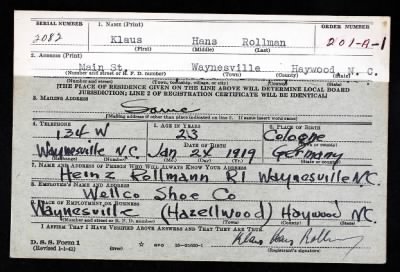 SERIAL NUMBER 1. NAME (Print) ORDER NUMBER
2082 Klaus Hans Rollman 201-A-1
(First) (Middle) (Last)
2. ADDRESS (Print)
Main St. Waynesville Haywood N. C.
(Number and street or R. F. D. number) (Town) (County) (State)
[THE PLACE OF RESIDENCE GIVEN ON THE LINE ABOVE WILL DETERMINE LOCAL BOARD
JURISDICTION; LINE 2 OF REGISTRATION CERTIFICATE WILL BE IDENTICAL]
3. MAILING ADDRESS
Same
[Mailing address if other than place indicated on line 2. If same insert word same]
4. TELEPHONE 5. AGE IN YEARS 6. PLACE OF BIRTH
134 W 23 Cologne
DATE OF BIRTH (Town or county)
Waynesville N.C. Jan 1919 Germany
7. NAME AND ADDRESS OF PERSON WHO WILL ALWAYS KNOW YOUR ADDRESS
Heinz Rollmann R1 Waynesville N.C.
8. EMPLOYER'S NAME AND ADDRESS
Wellco Shoe Co
9. PLACE OF EMPLOYMENT OR BUSINESS
Waynesville (Hazellwood) Haywood N.C.
(Number and street or R. F. D. number) (Town) (County) (State)
I AFFIRM THAT I HAVE VERIFIED ABOVE ANSWERS AND THAT THEY ARE TRUE.
D. S. S. Form 1 Klaus Hans Rollmann
(Revised 1-1-42) GPO 16-21630-1 (Registrant's signature)